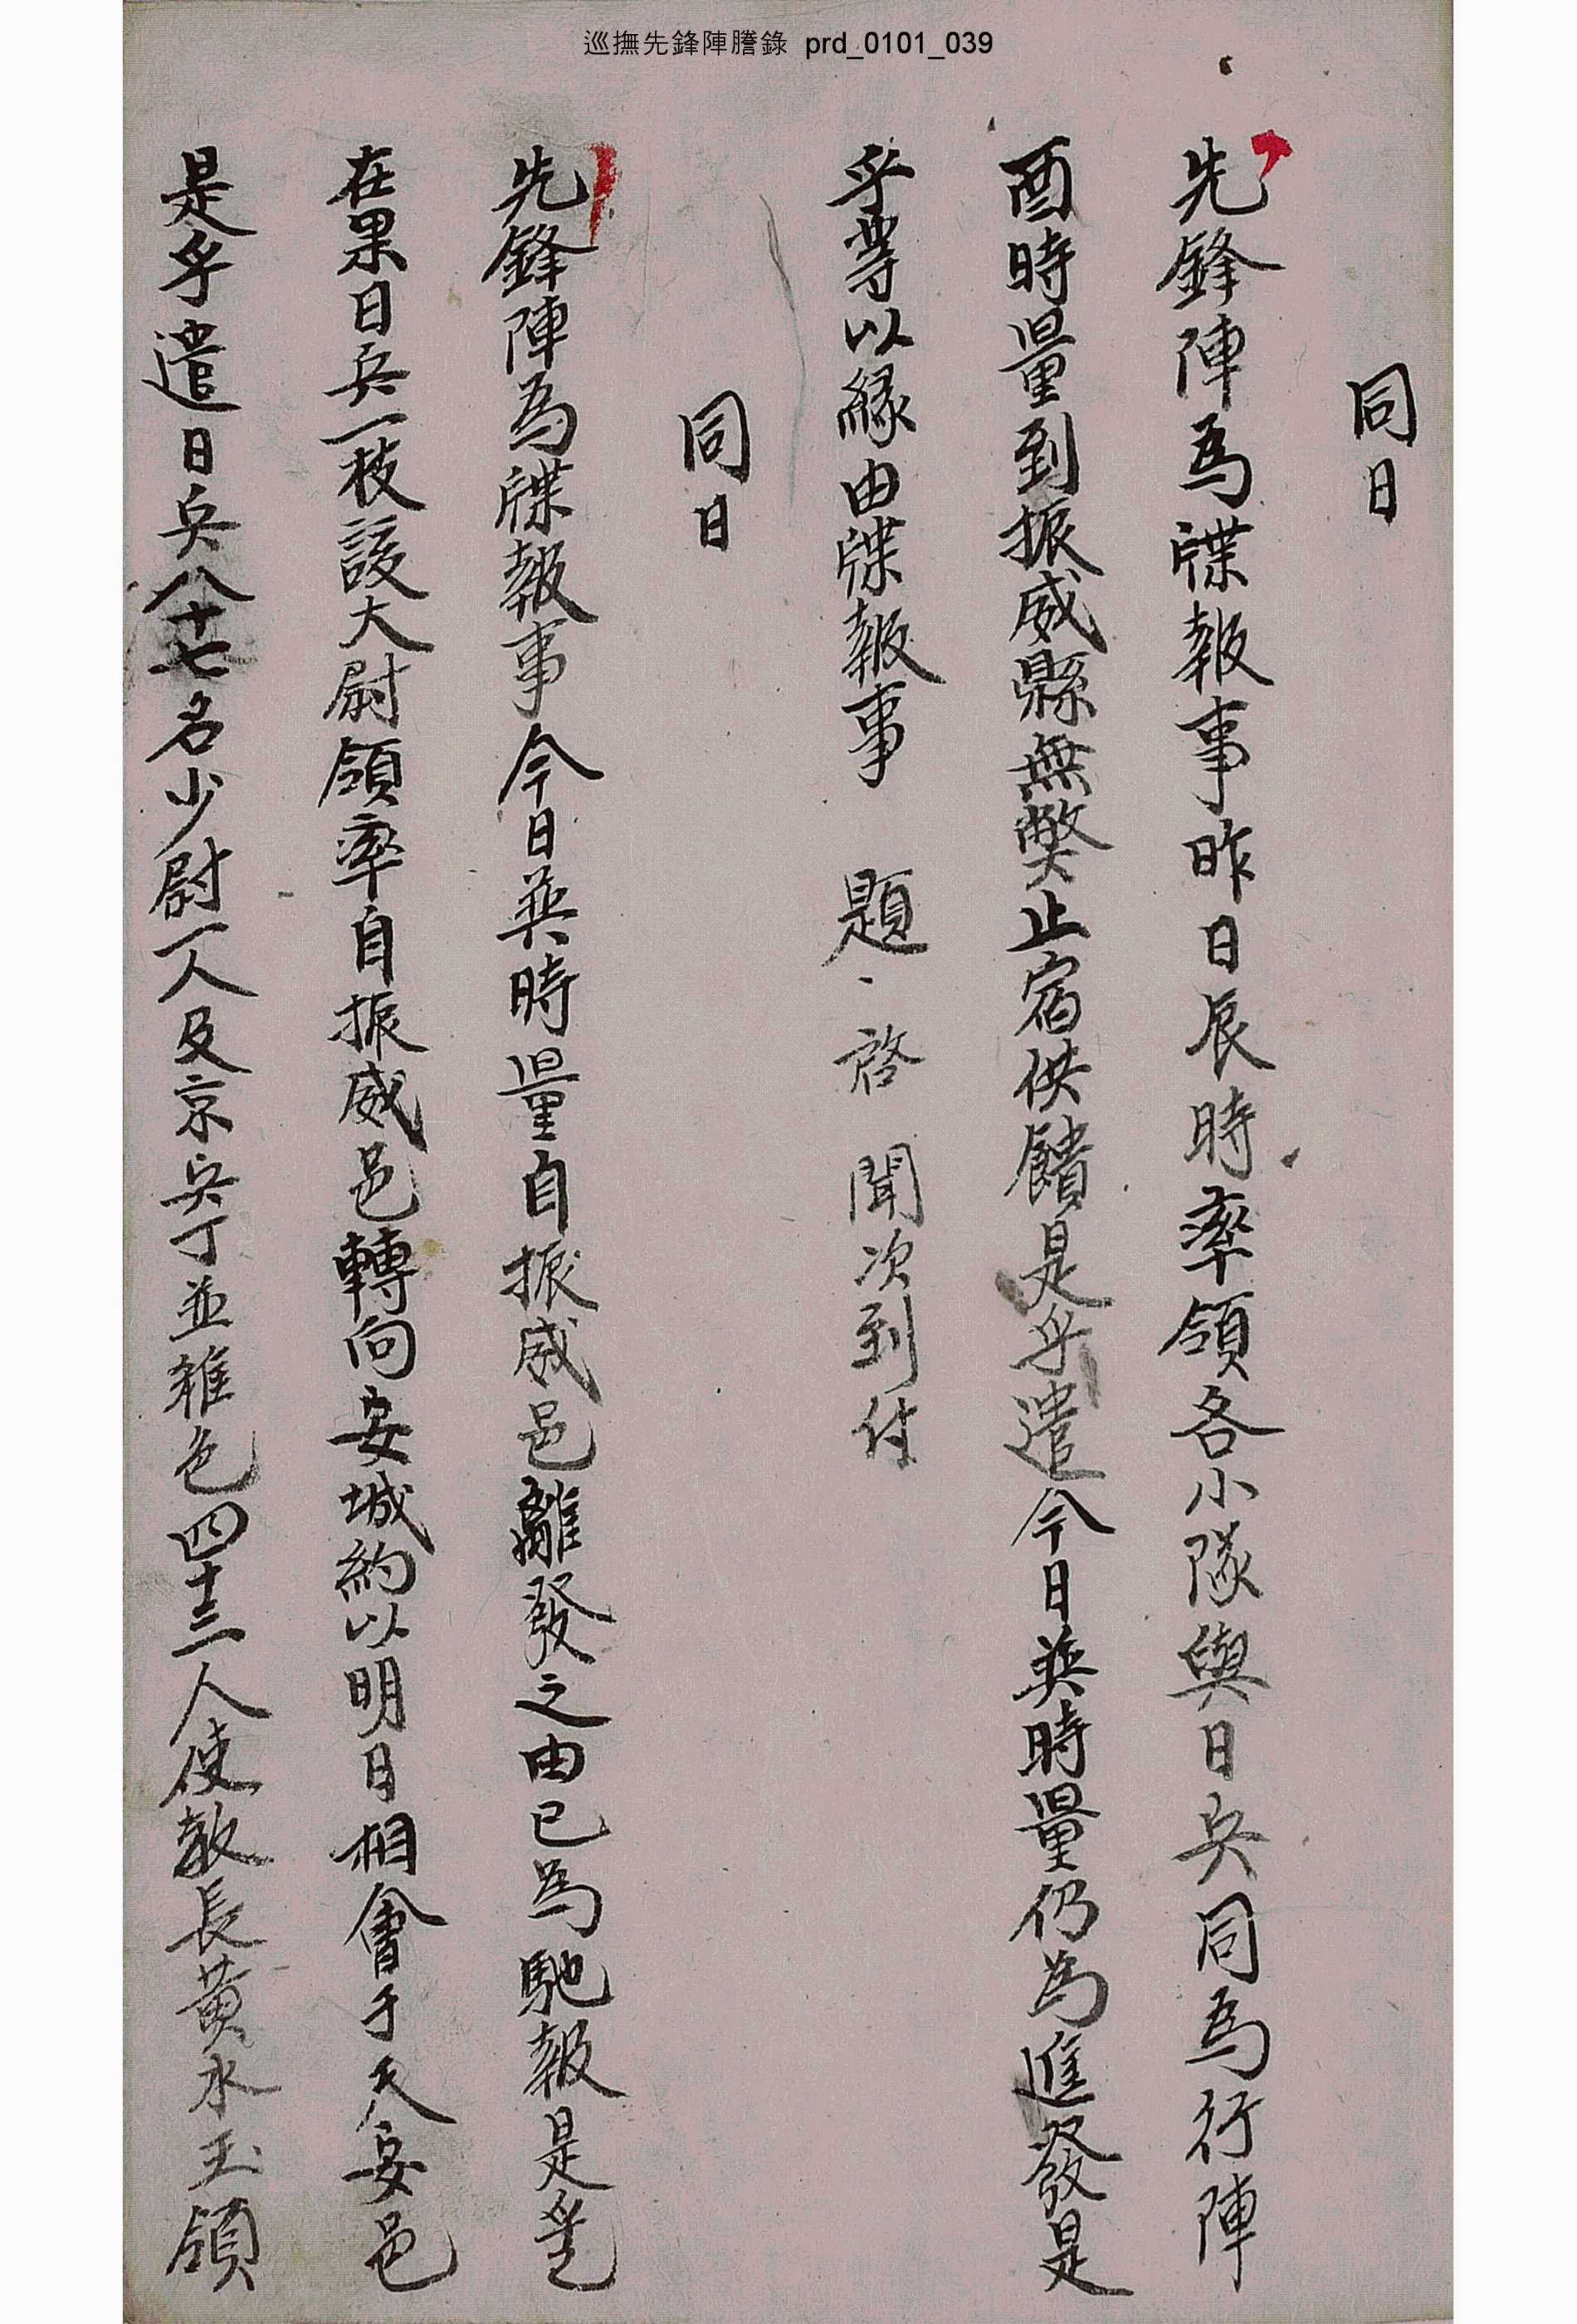 巡撫先鋒陣謄錄 prd_0101_039
同日
先鋒陣爲牒報事昨日辰時率領各小隊與日兵同爲行陣
酉時量到振威縣無弊止宿供饋是乎遣今日英時量仍爲進發是
乎等以緣由牒報事 題 啓 聞次到付
同日
先鋒陣爲牒報事今日英時量自振威邑離發之由已爲馳報是
在果日兵一枝該大尉領率自振威邑轉向安城約以明日相會于天安邑
是乎遣日兵八十七名少尉一人及京兵丁並雜色四十三人使敎長黃水玉領